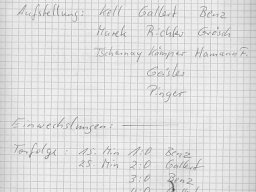 Aufstellung: Koll Gallert Benz
Marek Richter Grösch
Tschernay Kömper Hamann F.
Geisler
Pinger
Einwechslungen:
Torfolge: 15. Min 1:0 Benz
25. Min 2:0 Gallert
3:0 Benz